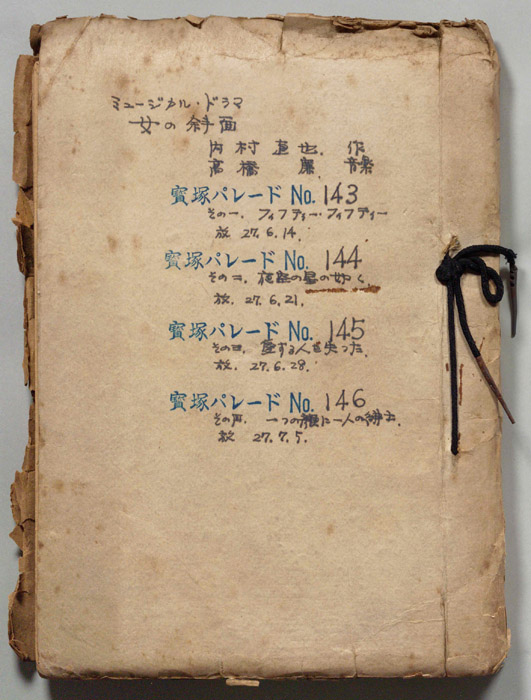 ミュージカル・ドラマ
女の斜面
内村直也. 作
高橋廉. 音楽
寶塚パレード No. 143
その一. フィフティー・フィフティー
放 27.6.14.
寶塚パレード No. 144
その二. の星の如く
放. 27.6.21.
寶塚パレード No. 145
その三. 愛する人を失った.
放. 27.6.28.
寶塚パレード No. 146
その四. 一つの に一人の紳士.
放 27.7.5.